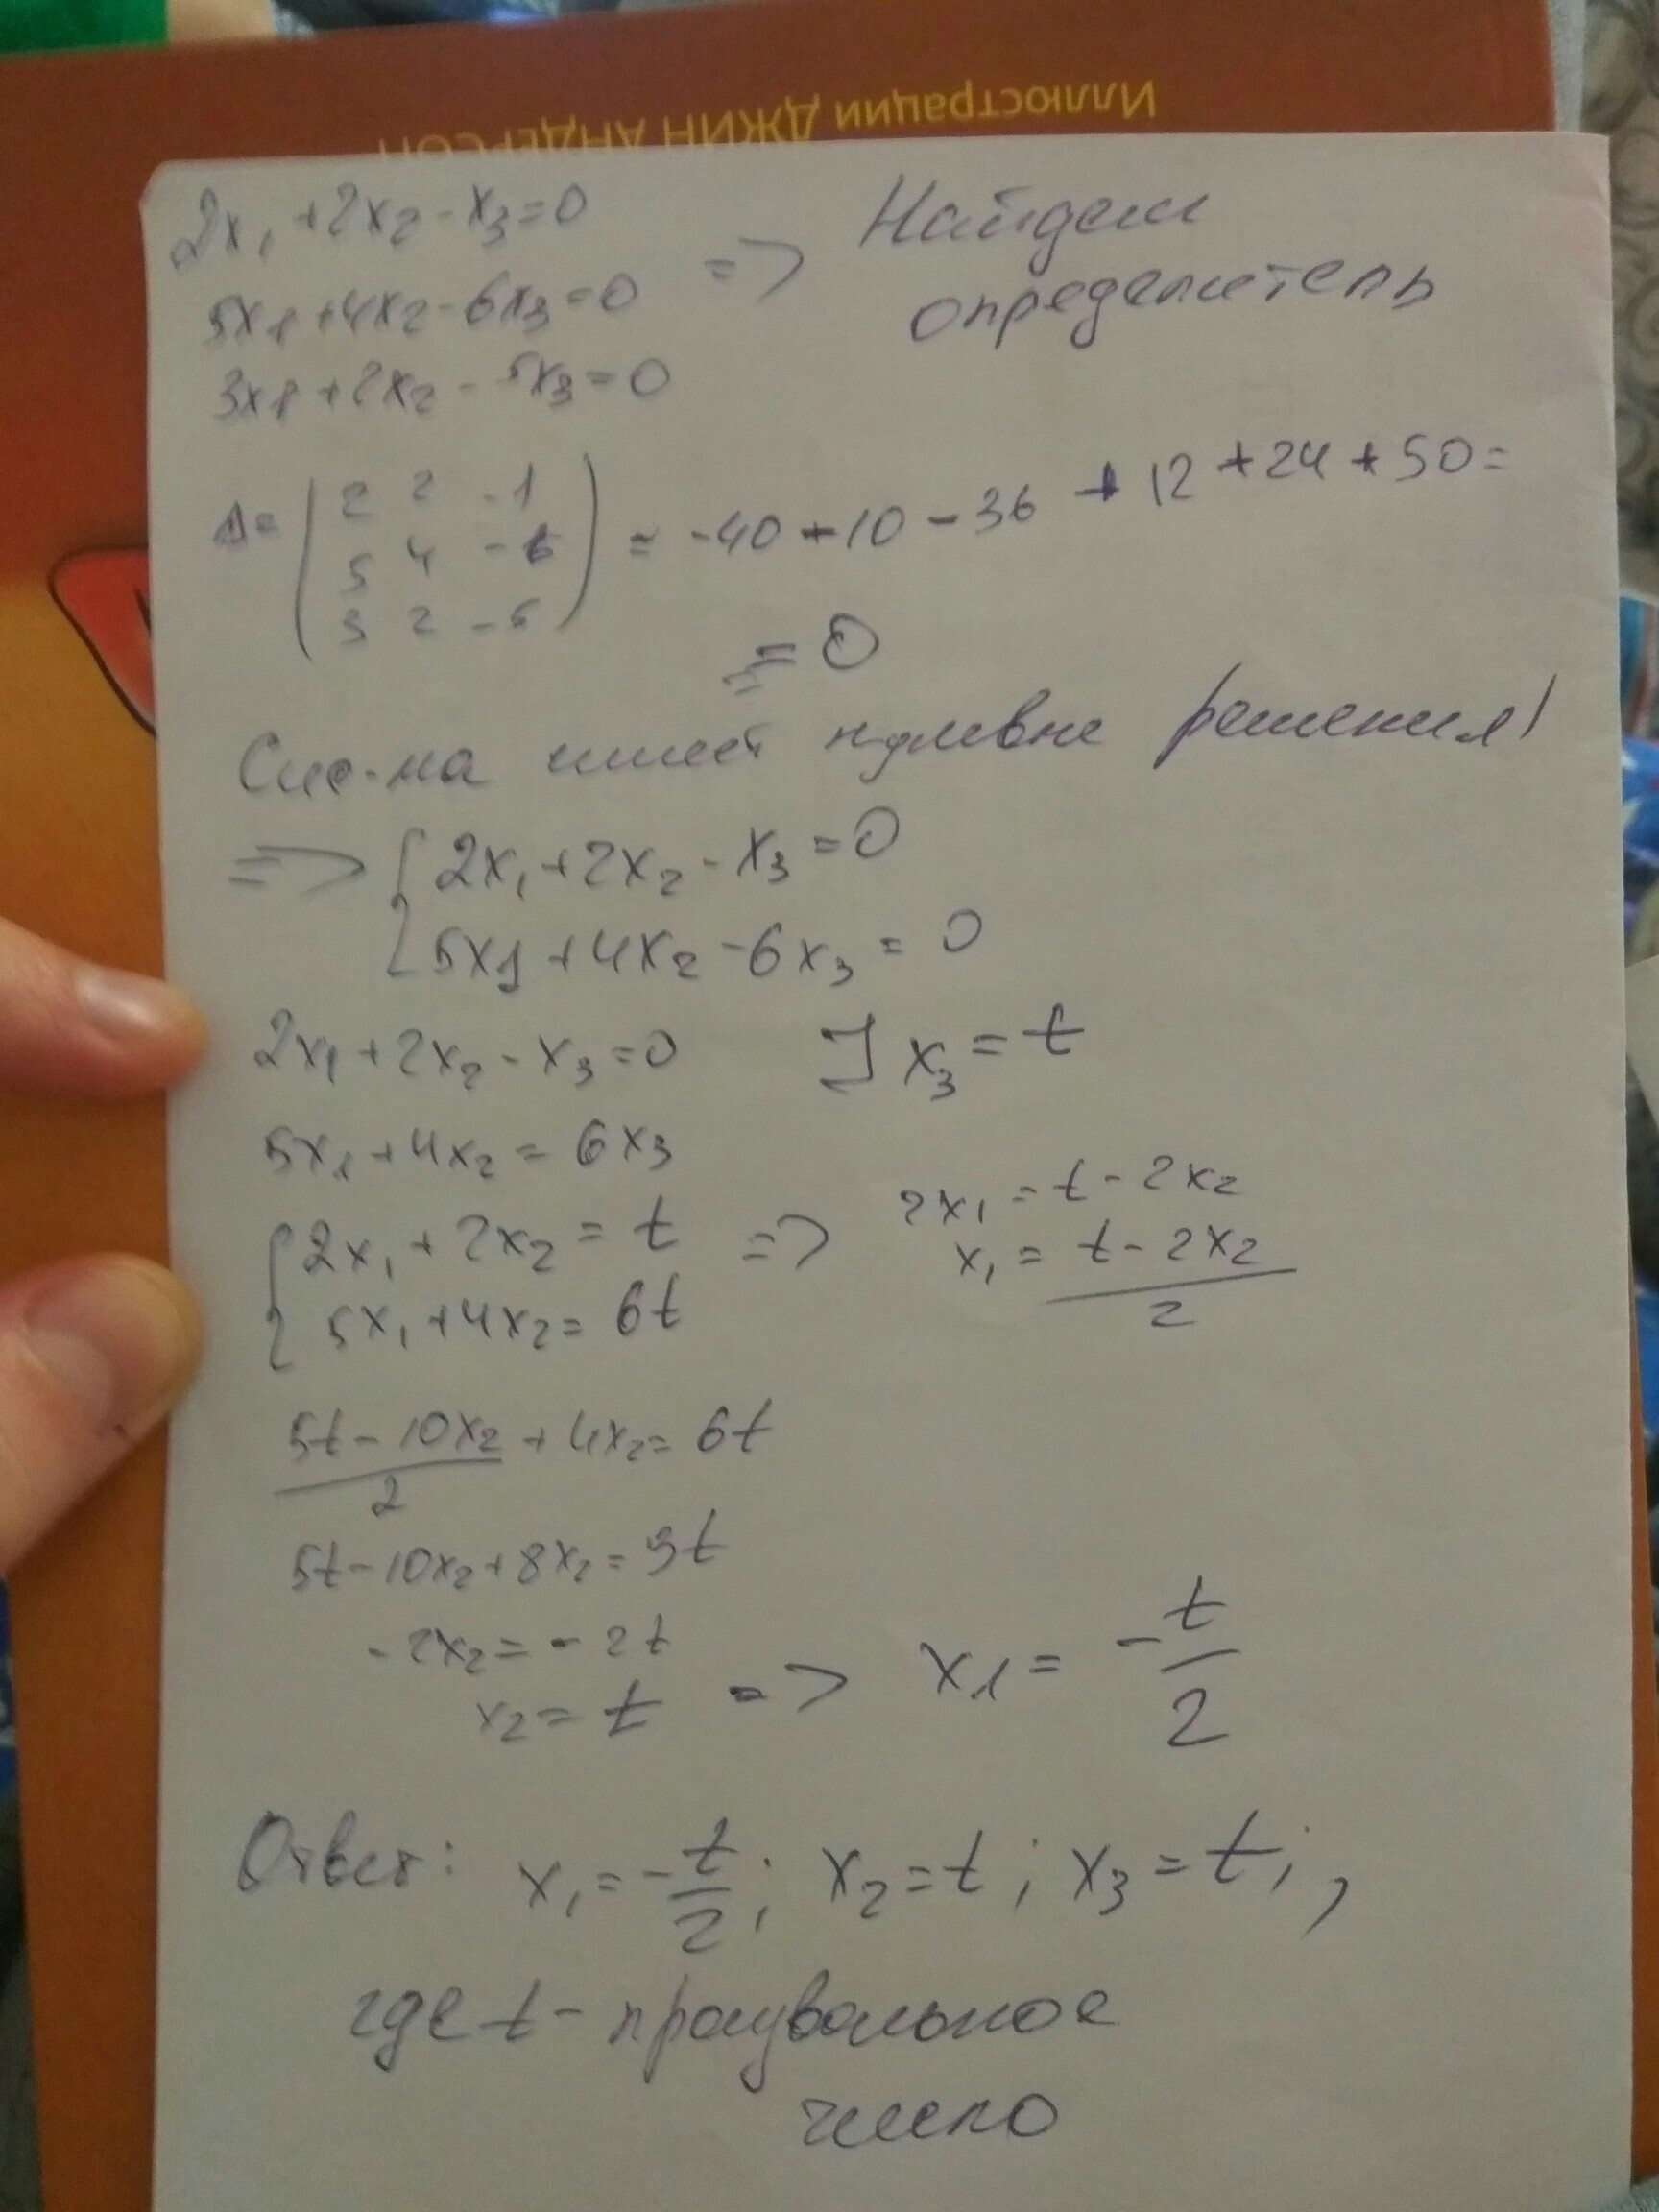 Иллюстрации ДЖИН АНДЕРСОН
2x₁+2x₂-x₃=0
5x₁+4x₂-6x₃=0
3x₁+2x₂-5x₃=0
=> Найдем
определитель
Δ= (2 2 -1
5 4 -6
3 2 -5) = -40+10-36+12+24+50=
=0
Сис-ма имеет нулевые решения!
=> {2x₁+2x₂-x₃=0
5x₁+4x₂-6x₃=0
2x₁+2x₂-x₃=0 ] x₃=t
5x₁+4x₂=6x₃
{2x₁+2x₂=t => 2x₁=t-2x₂
5x₁+4x₂=6t x₁=(t-2x₂)/2
(5t-10x₂)/2+4x₂=6t
5t-10x₂+8x₂=3t
-2x₂=-2t
x₂=t => x₁=-t/2
Ответ: x₁=-t/2; x₂=t; x₃=t;,
где t- произвольное
число